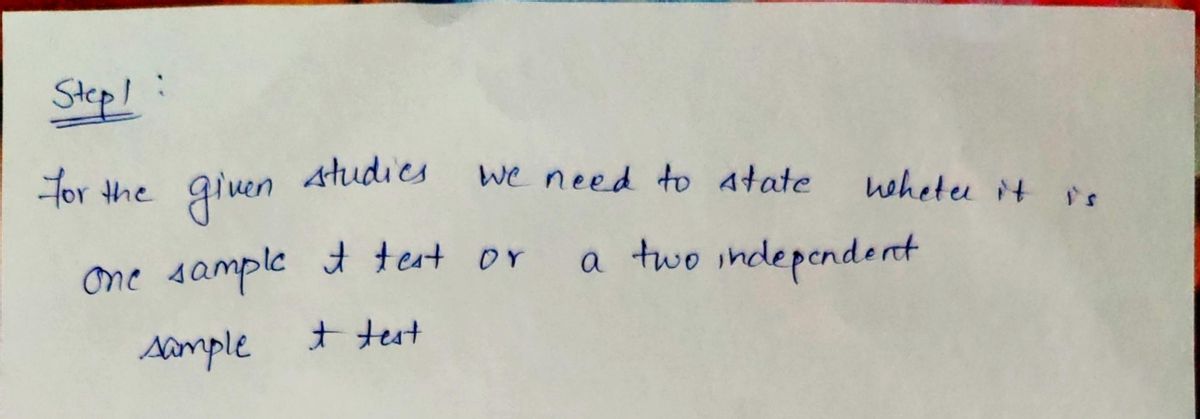 Step 1 :
For the given studies we need to state wheter it is
one sample t test or a two independent
sample t test